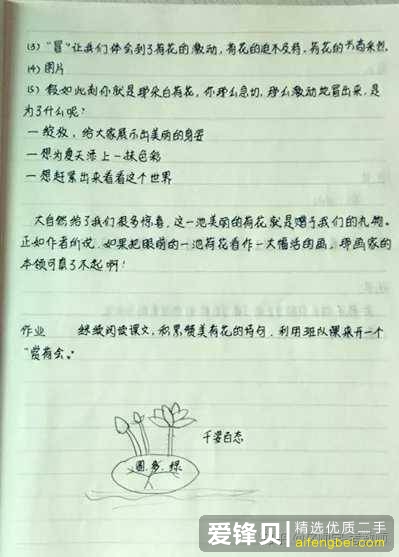 (3)“冒”让我们体会到了荷花的激动，荷花的迫不及待，荷花的
(4)图片
(5)假如此刻你就是那朵白荷花，你那么急切，那么激动地冒出来，是
为了什么呢？
一绽放，给大家展示出美丽的身姿
一想为夏天添上一抹色彩
一想赶紧出来看看这个世界
大自然给了我们很多惊喜，这一池美丽的荷花就是赠予我们的礼物。
正如作者所说，如果把眼前的一池荷花看作一大幅活的画，那画家的
本领可真了不起啊！
作业 继续阅读课文，积累赞美荷花的诗句，利用班队课来开一个
“赏荷会。”
千姿百态
圆 多 绿
爱锋贝 精选优质二手
aifengbei.com